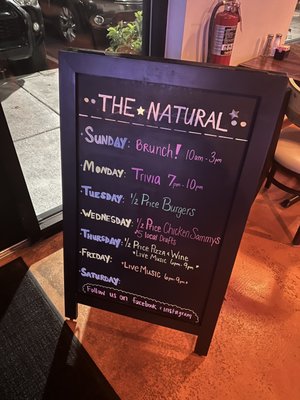 THE NATURAL
SUNDAY: Brunch! 10am-3pm
MONDAY: Trivia 7pm-10pm
TUESDAY: 1/2 Price Burgers
WEDNESDAY: 1/2 Price Chicken Sammys
$5 local Drafts
THURSDAY: 1/2 Price Pizza & Wine
*Live Music 6pm-9pm*
FRIDAY: *LIVE MUSIC 6pm-9pm*
SATURDAY:
Follow us on Facebook & Instagram